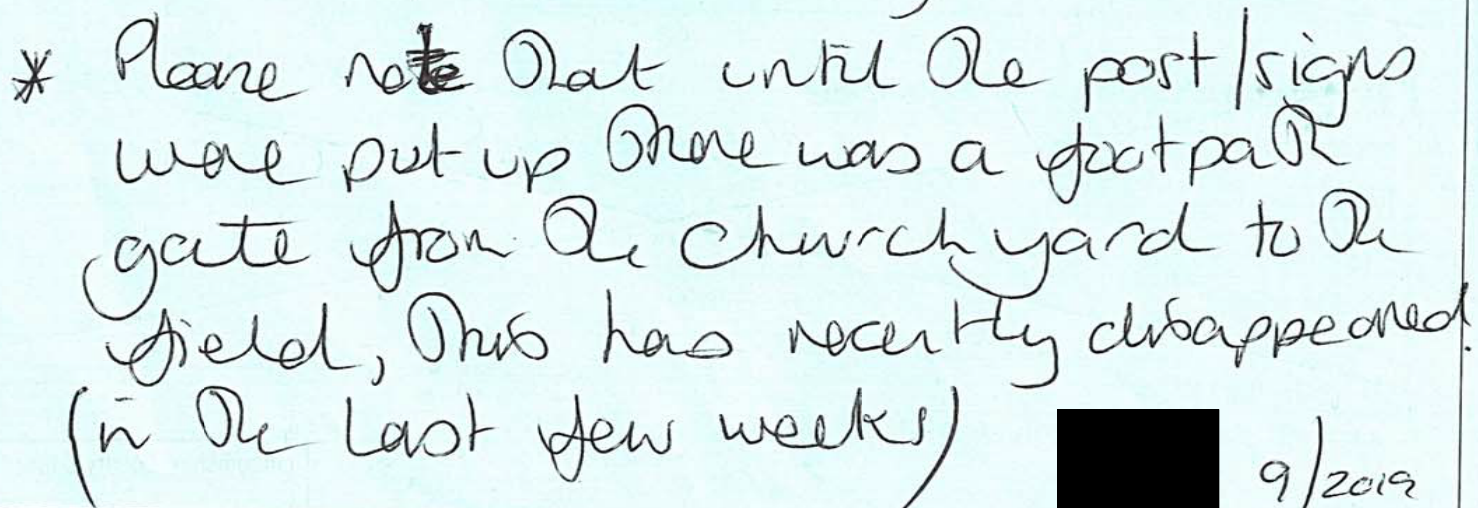 * Please note that until the post/signs
were put up there was a footpath
gate from the churchyard to the
field, this has recently disappeared.
(in the last few weeks)
9/2019